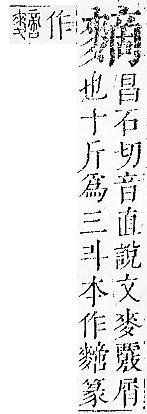 䵂
昌石切音直說文麥覈屑
也十斤爲三斗本作篆
作